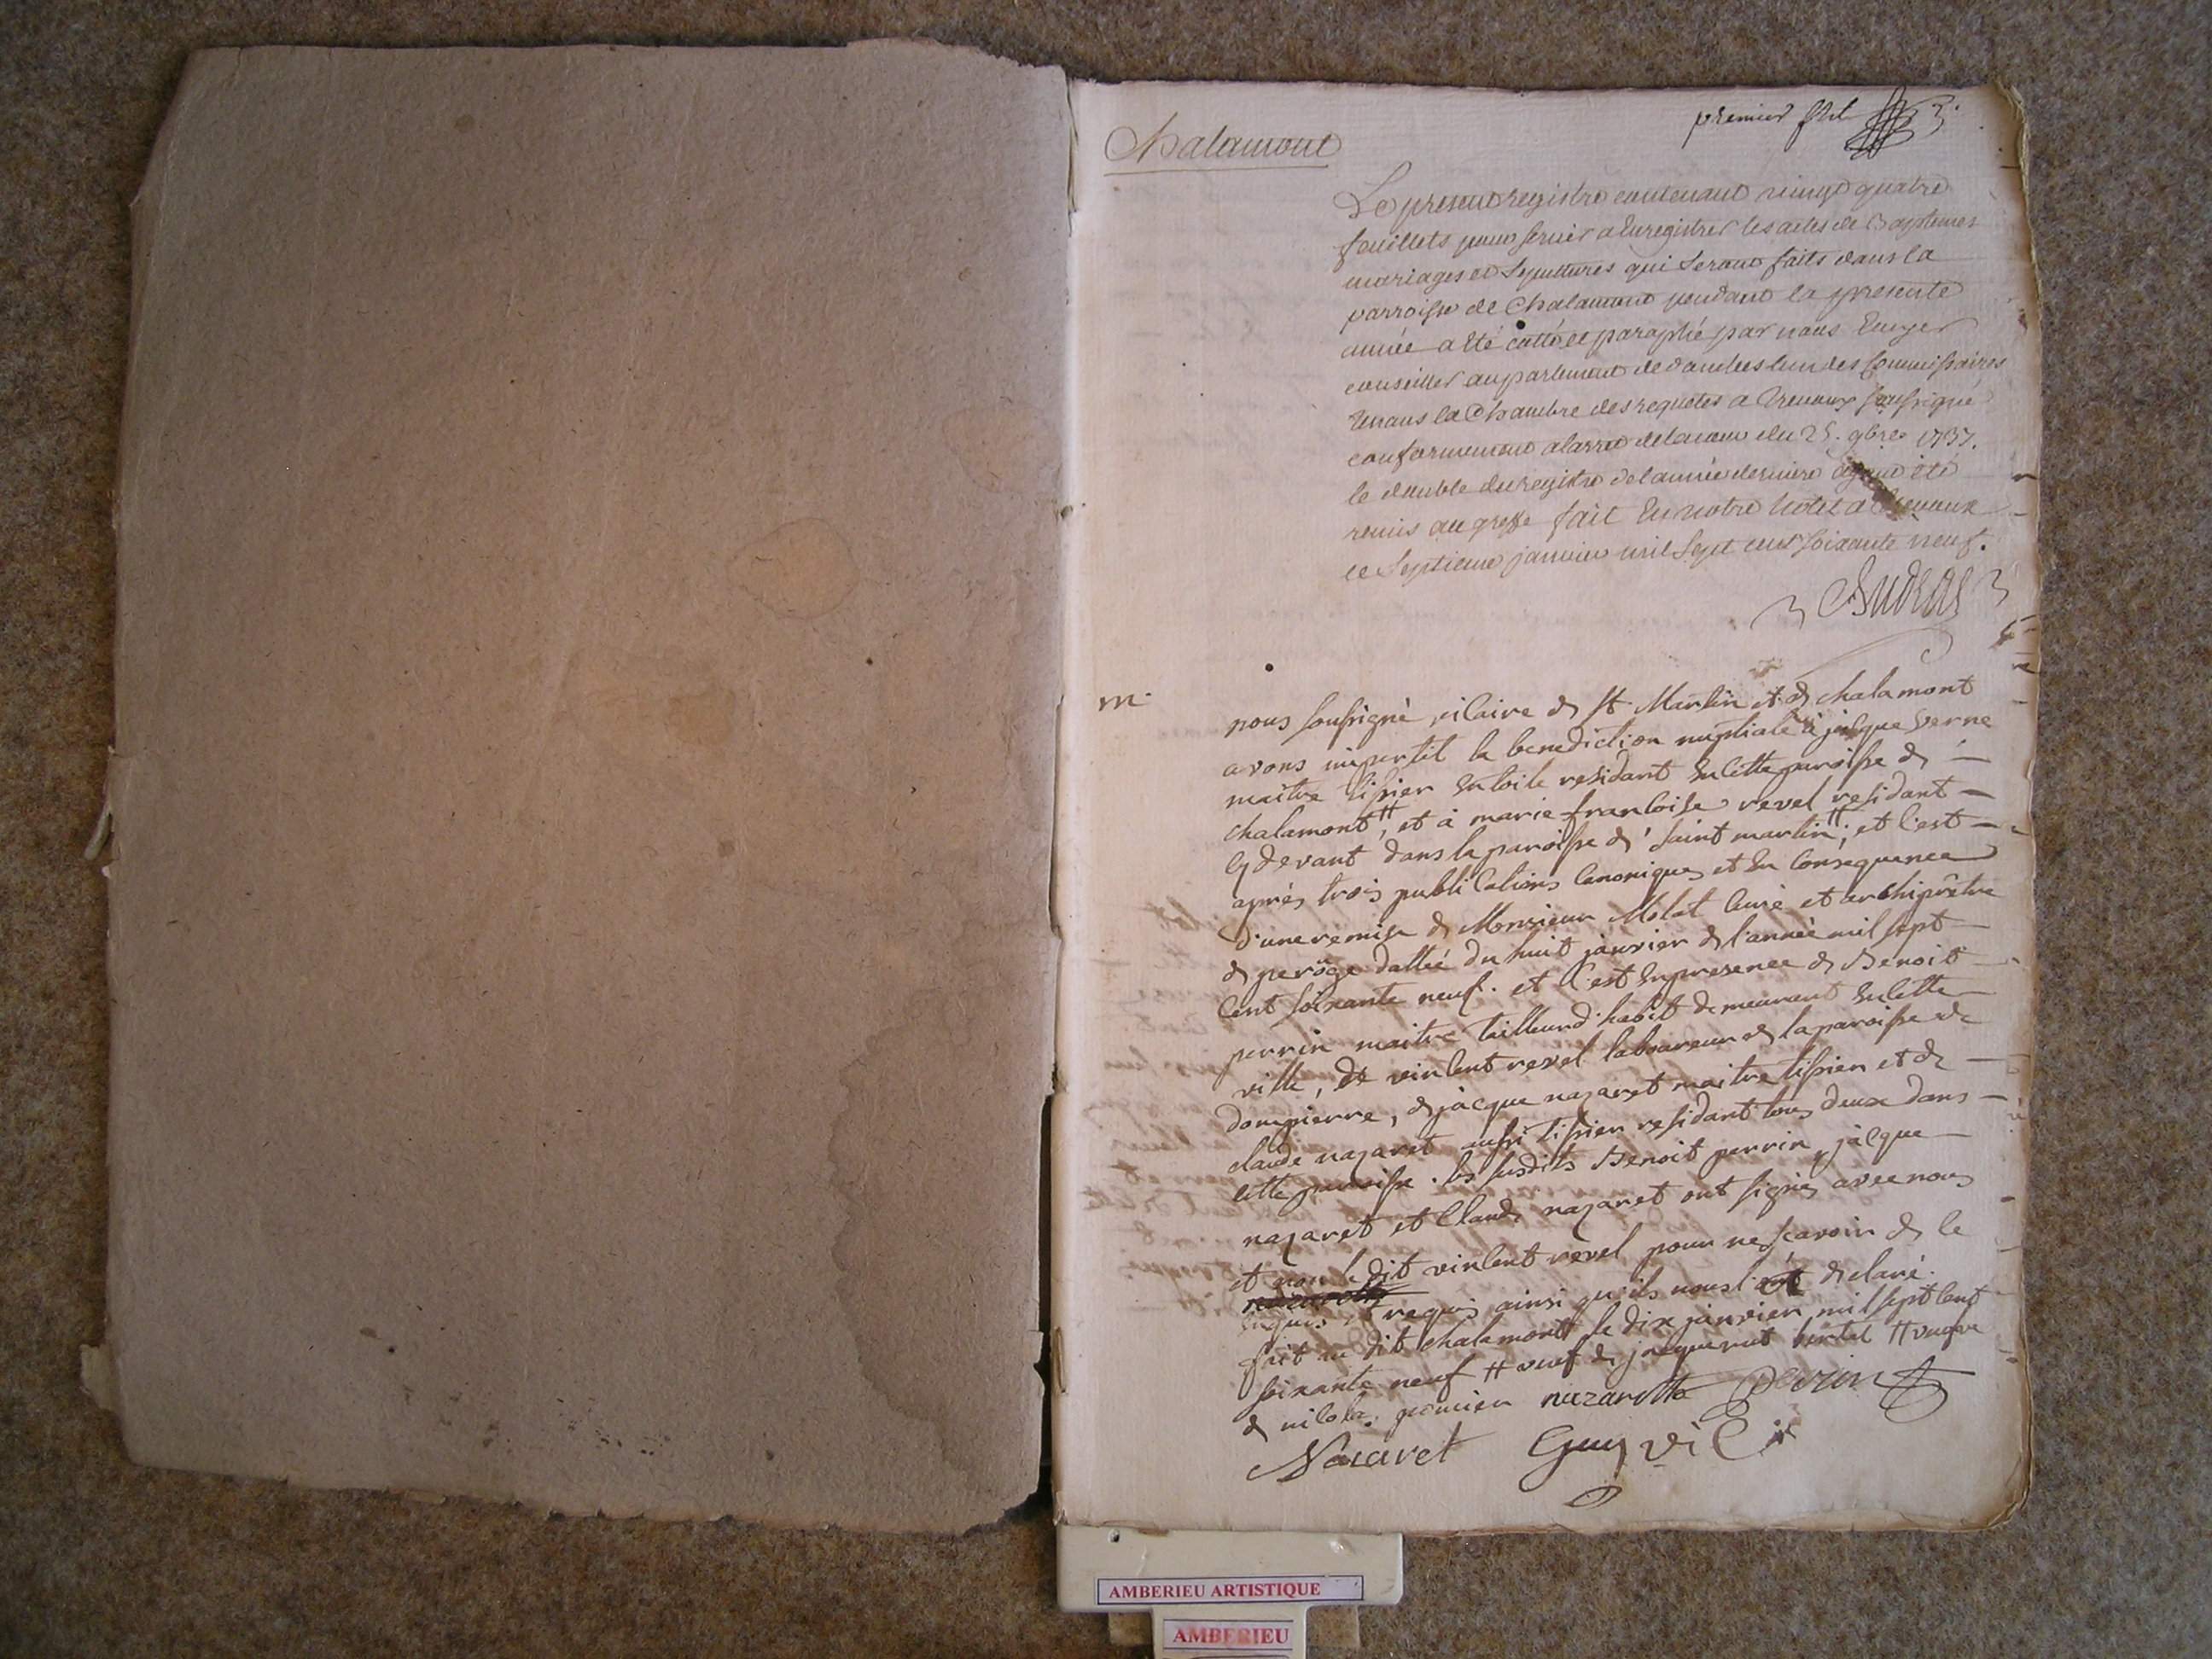 premier flet
Chalamont
Le present registre contenant vingt quatre
feuillets pour servir a Enregistrer les actes de Baptemes
mariages et Sepultures qui seront faits dans la
parroisse de Chalamont pendant la presente
année a été cotté et paraphé par nous Ecuyer
conseiller au parlement de dombes lun des Commissaires
tenans la Chambre des requetes a Trevoux soussigné
conformement a larret de la cour du 25. 9bre 1737.
le double du registre de l'année derniere ayant été
remis au greffe fait En notre hotel a Trevoux
ce Septieme janvier mil Sept cent soixante neuf.
m.
nous soussigné vicaire de st Martin et de chalamont
avons impertit la benediction nuptiale à jacque verne
maître tissier en toile residant en cette paroisse de
chalamont ++, et à marie francoise revel residant
cy devant dans la paroisse de saint martin ++, et c'est
après trois publications canoniques et en consequence
d'une remise de Monsieur Molat curé et archiprêtre
de peroge dattée du huit janvier de l'année mil sept
cent soixante neuf. et c'est en presence de Benoit
perrin maitre tailleur d'habit demeurant en cette
ville, de vincent revel laboureur de la paroisse de
dompierre, de jacque nazaret maitre tissier et de
claude nazaret aussi tissier residant tous deux dans
cette paroisse. les susdits Benoit perrin, jacque
nazaret et Claude nazaret ont signés avec nous
et non le dit vincent revel pour ne sçavoir de ce
enquis et requis ainsi qu'ils nous l'ont declaré.
fait au dit chalamont le dix janvier mil sept cent
soixante neuf ++ veuf de jaquemet ++ veuve
de nicola nazarette perrin
Nazaret Guy vic
AMBERIEU ARTISTIQUE
AMBERIEU